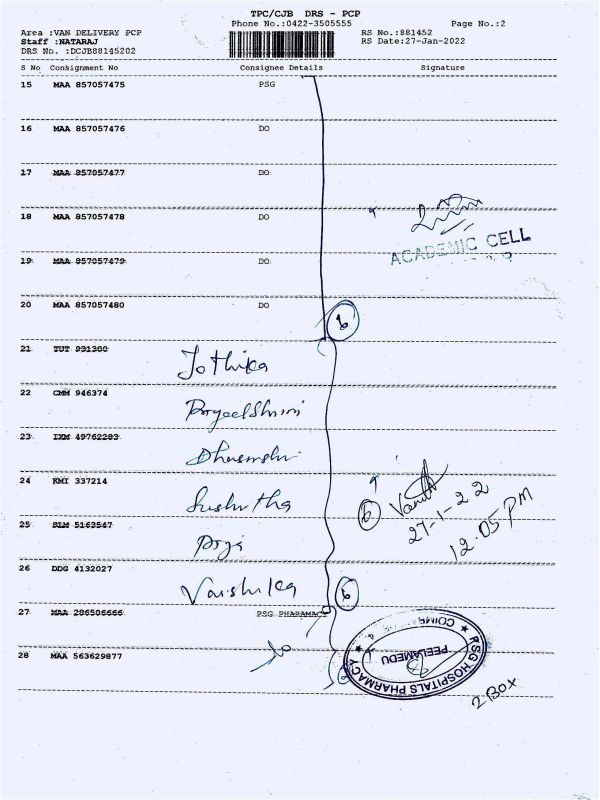 TPC/CJB DRS - PCP
Phone No.:0422-3505555 Page No.:2
Area :VAN DELIVERY PCP RS No.:881452
Staff :NATARAJ RS Date:27-Jan-2022
DRS No. :DCJB88145202
S No Consignment No Consignee Details Signature
15 MAA 857057475 PSG
16 MAA 857057476 DO
17 MAA 857057477 DO
18 MAA 857057478 DO
ACADEMIC CELL
19 MAA 857057479 DO
20 MAA 857057480 DO
6
21 TUT 931300
Jothika
22 CMM 946374
23 IXM 49762283
24 KMI 337214
Sushitha
6 27-1-22
12.05 PM
25 SLM 5163547
26 DDG 4132027
Vaishika 6
27 MAA 286506666 PSG PHARAMACY
28 MAA 563629877
PSG HOSPITALS PHARMACY
PEELAMEDU
2 BOX